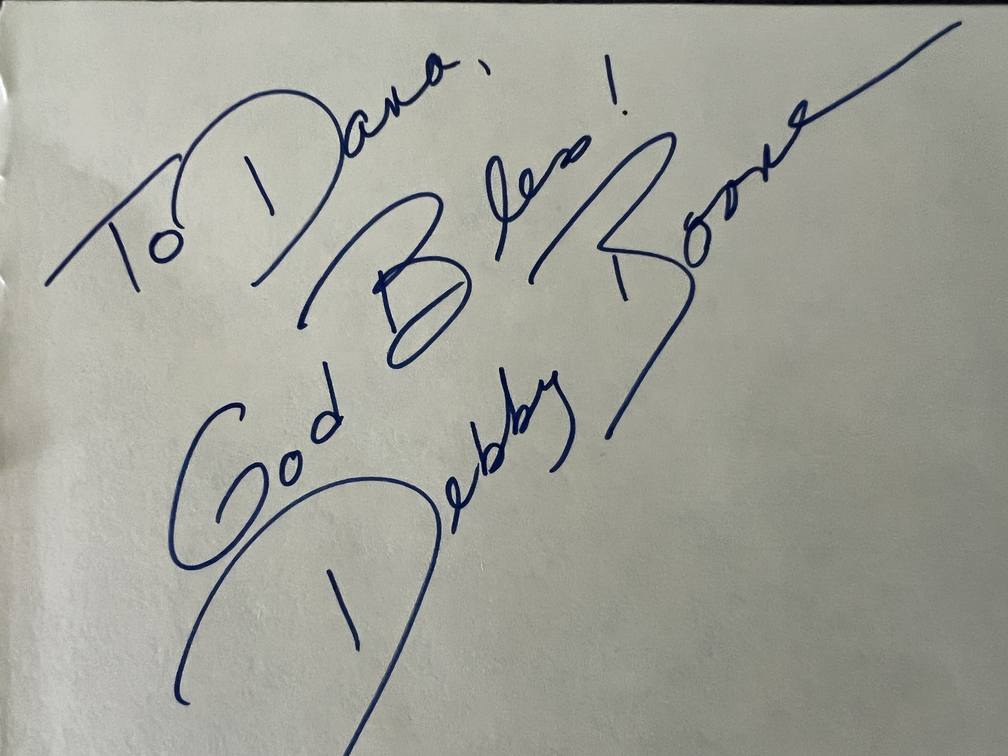 To Dana,
God Bless!
Debby Boone